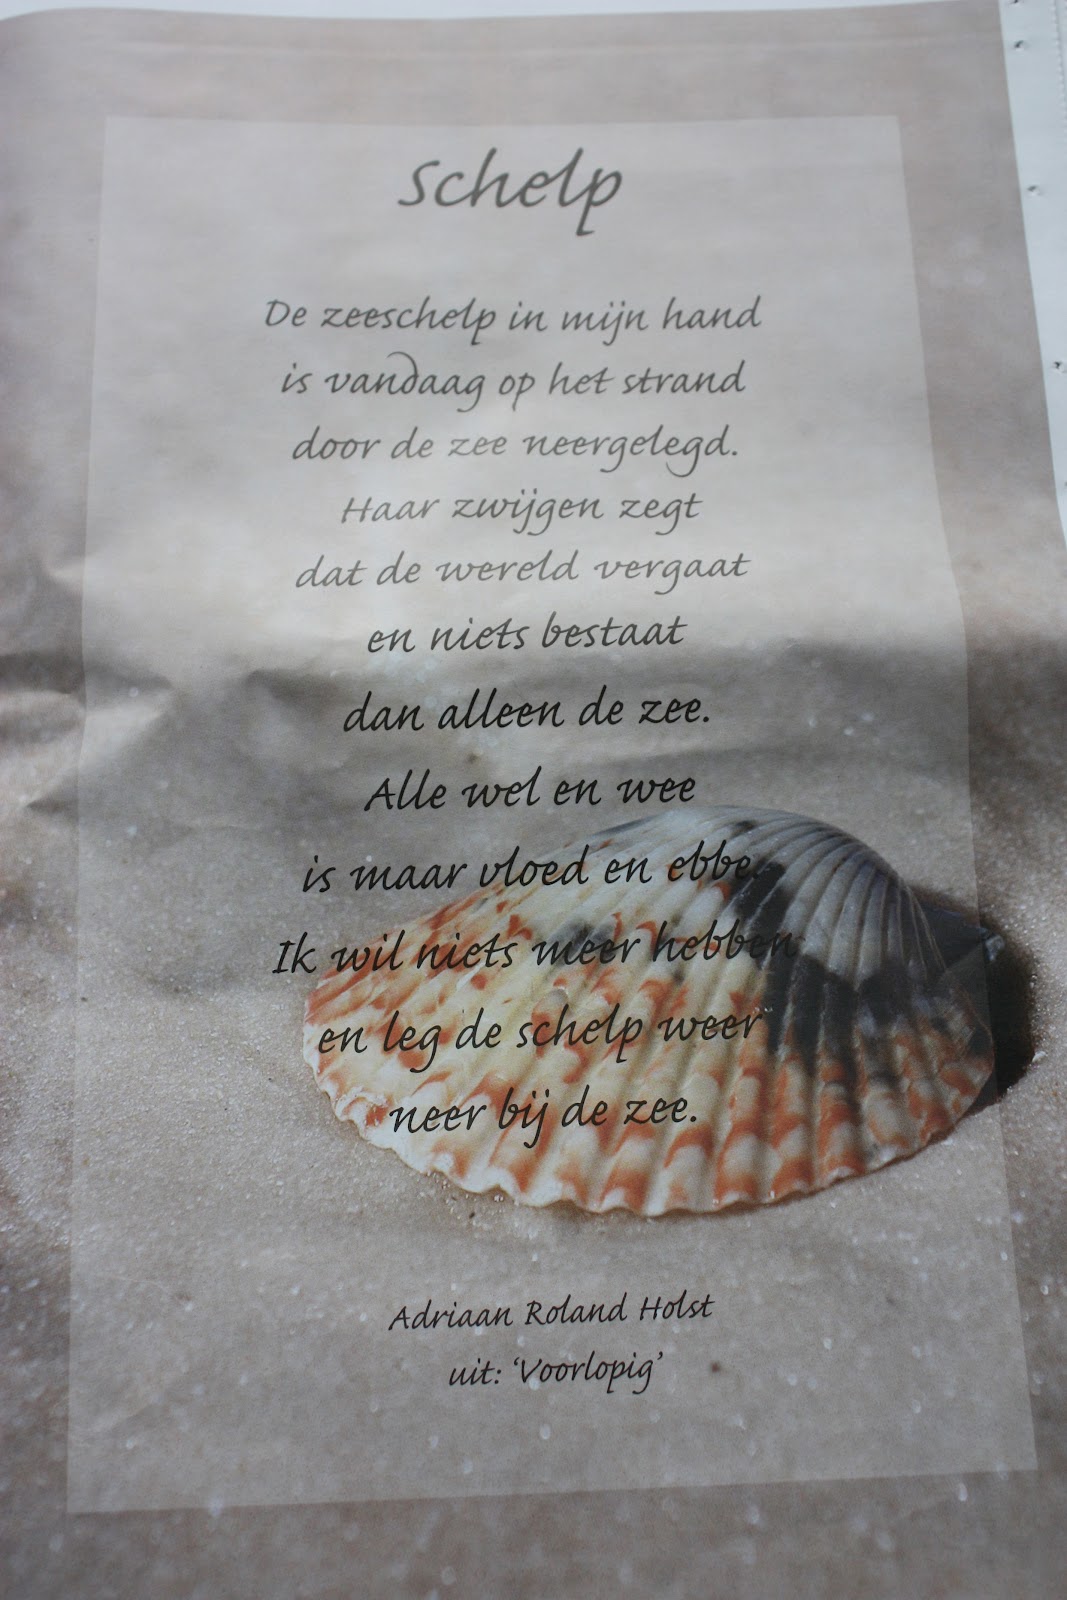 Schelp
De zeeschelp in mijn hand
is vandaag op het strand
door de zee neergelegd.
Haar zwijgen zegt
dat de wereld vergaat
en niets bestaat
dan alleen de zee.
Alle wel en wee
is maar vloed en ebbe.
Ik wil niets meer hebben
en leg de schelp weer
neer bij de zee.
Adriaan Roland Holst
uit: ‘Voorlopig’